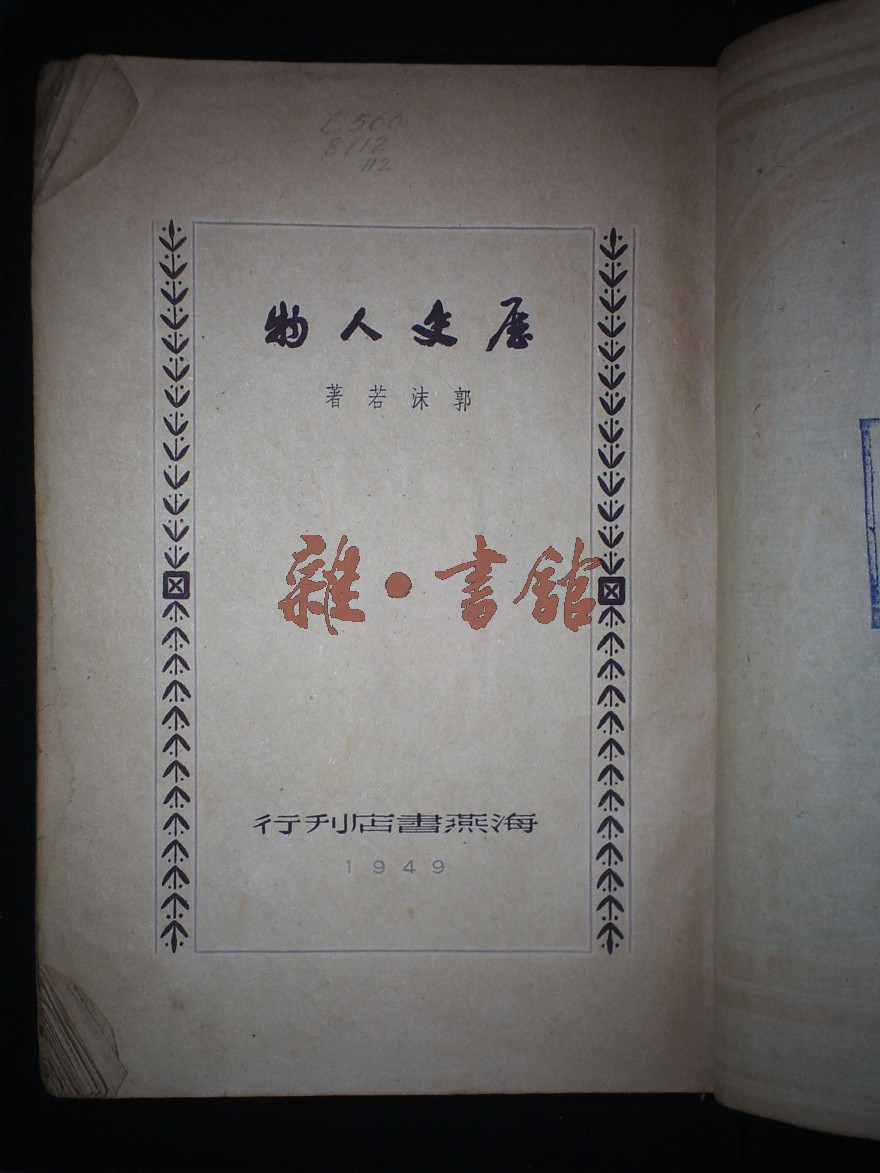 C 560
8112
112
歷史人物
郭沫若著
雜·書館
海燕書店刊行
1949